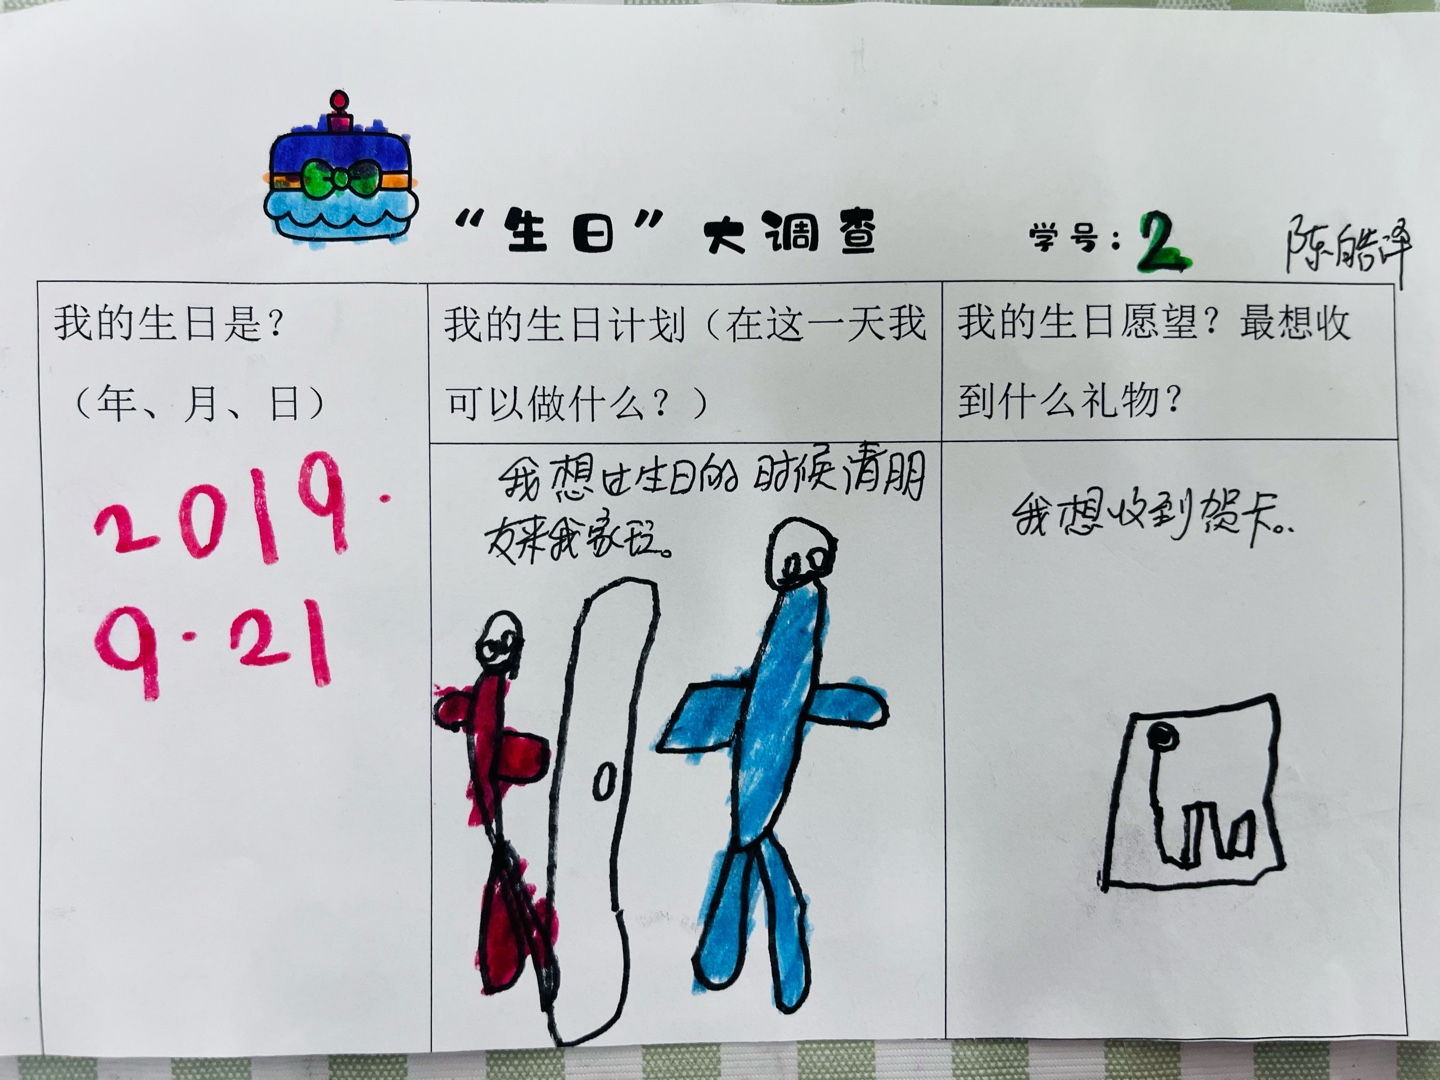 “生日”大调查 学号：2 陈皓泽
我的生日是？
（年、月、日）
2019.
9.21
我的生日计划（在这一天我
可以做什么？）
我想过生日的时候请朋
友来我家玩。
我的生日愿望？最想收
到什么礼物？
我想收到贺卡。